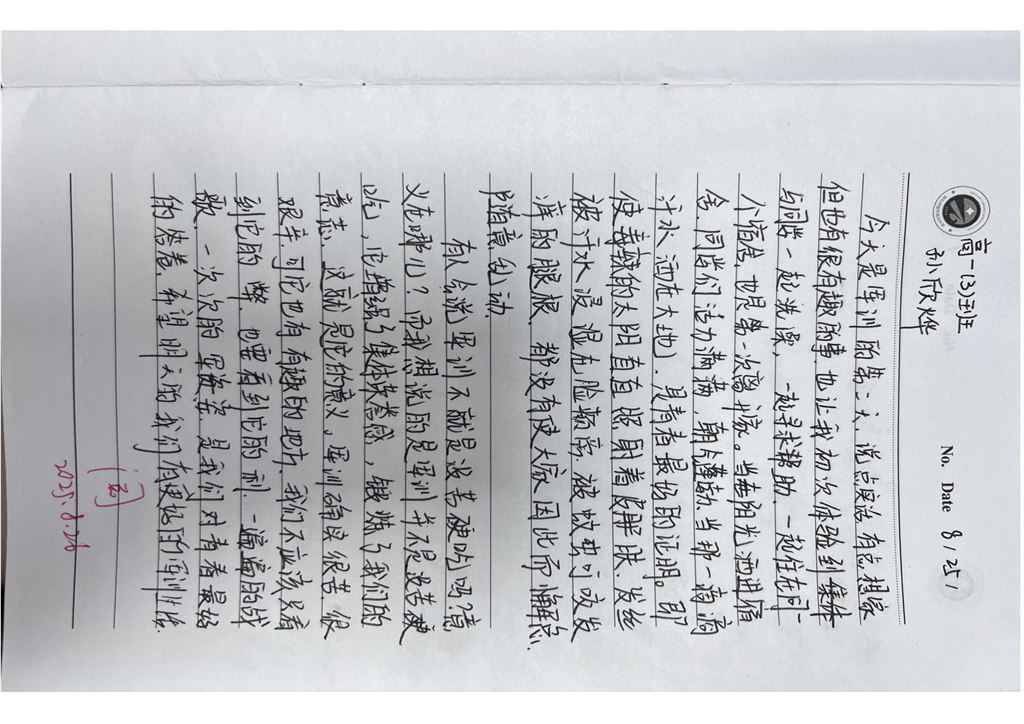 No.
Date 8/25/
高一(3)班
孙欣烨
今天是军训的第二天，说点良话有点想家
但也有很有趣的事也让我初次体验到集体
与同学一起洗澡，一起寻求帮助，一起住在同一
个宿舍，也是第一次离开家。当每阳光洒进宿
舍，同学们活力满满，朝气蓬勃，当那一滴滴
汗水洒在大地，是青春最好的证明。即
使毒辣的太阳直直照射着皮肤、发丝
被汗水浸湿在脸颊旁、被蚊虫叮咬发
痒的腿根，都没有使大家因此而懈怠、
随意乱动。
有人会说军训不就是没苦硬吃吗？意
义在哪儿？而我想说的是军训并不是没苦硬
吃，它增强了集体荣誉感，锻炼了我们的
意志，这就是它的意义，军训确实很苦、很
艰辛可它也有有趣的地方，我们不应该只看
到它的弊，也要看到它的利，一遍遍的战
歌，一次次的军姿是我们对青春最好
的答卷，希望明天的我们有更好的军训状态。
阅
2025.8.26